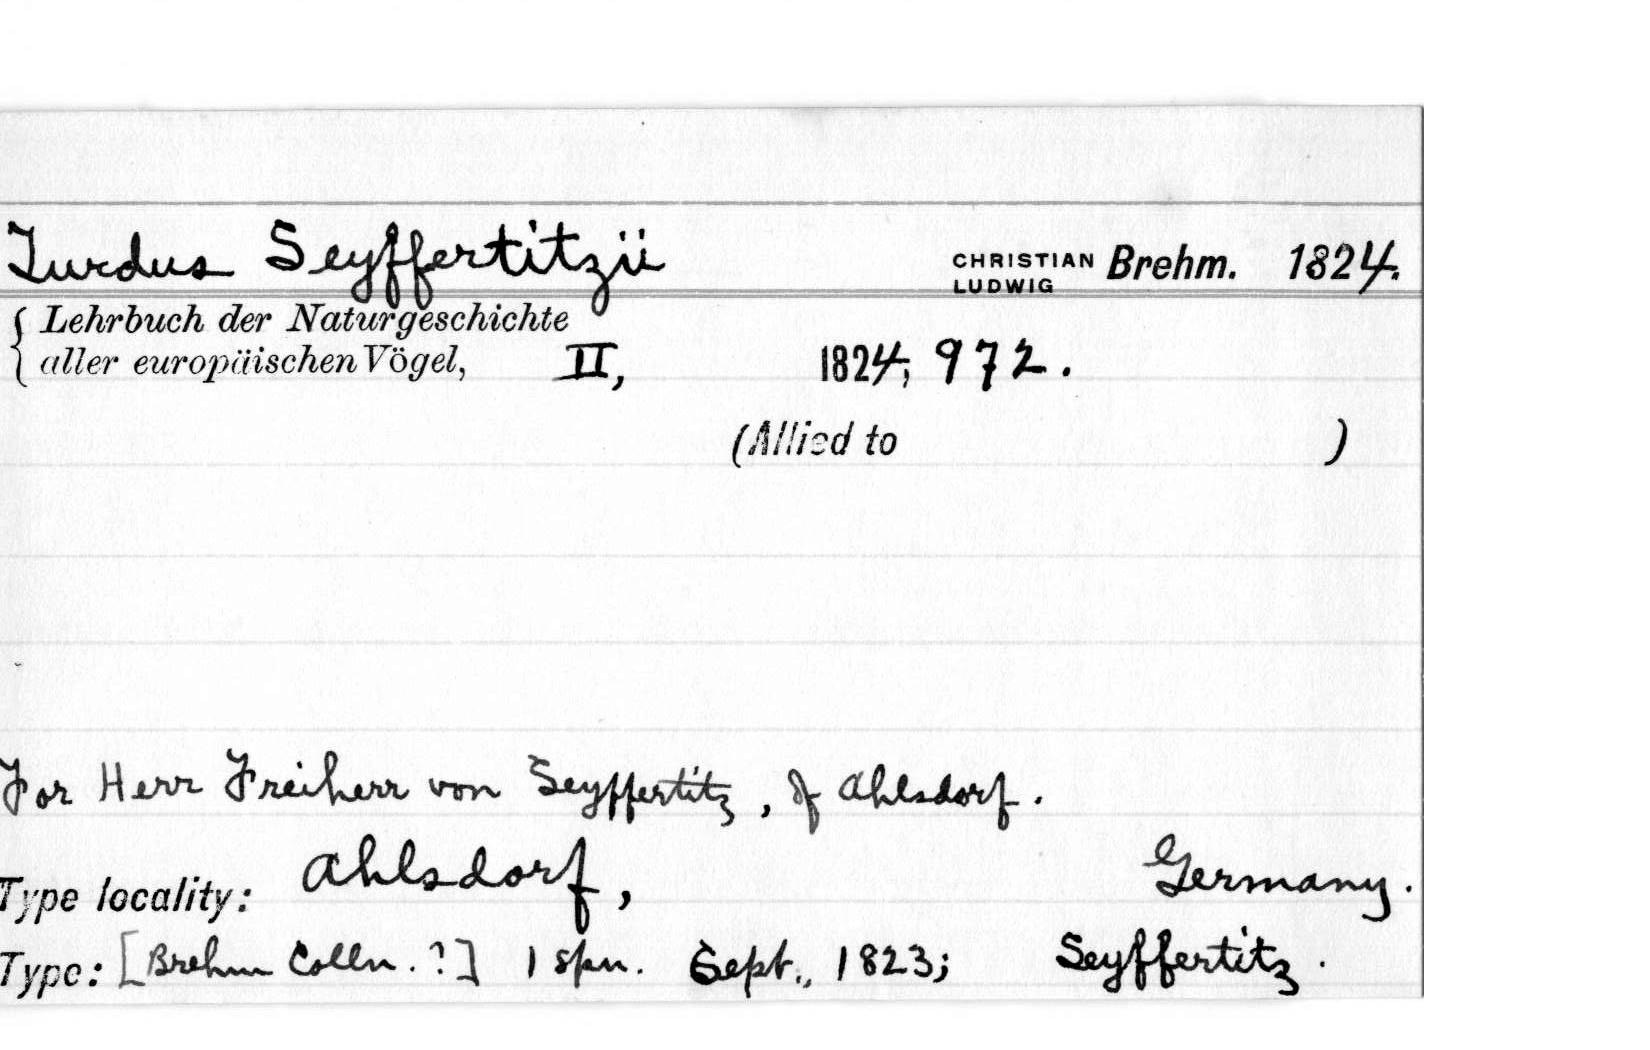 Turdus Seyffertitzii CHRISTIAN LUDWIG Brehm. 1824.
{ Lehrbuch der Naturgeschichte
aller europäischen Vögel, II, 1824, 972.
(Allied to )
For Herr Freiherr von Seyffertitz, of Ahlsdorf.
Type locality: Ahlsdorf, Germany.
Type: [Brehm Colln. ?] 1 spn. Sept., 1823; Seyffertitz.